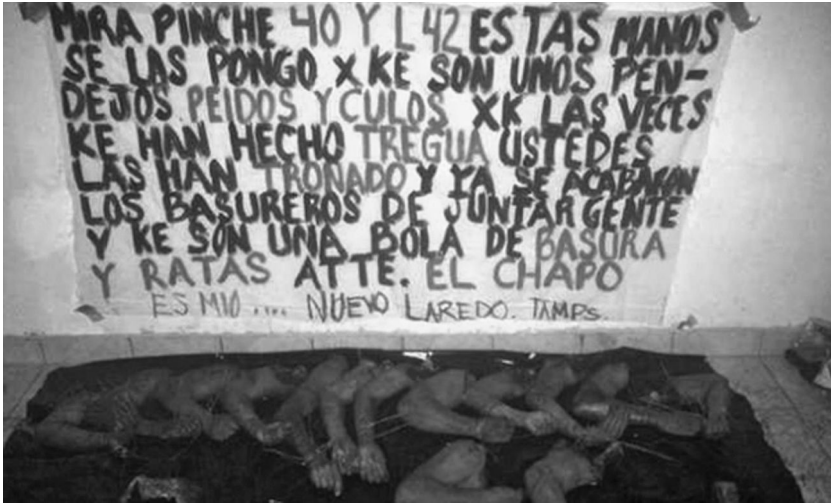 MIRA PINCHE 40 Y L 42 ESTAS MANOS
SE LAS PONGO X KE SON UNOS PEN-
DEJOS PEIDOS Y CULOS XK LAS VECES
KE HAN HECHO TREGUA USTEDES
LAS HAN TRONADO Y YA SE ACABARON
LOS BASUREROS DE JUNTAR GENTE
Y KE SON UNA BOLA DE BASURA
Y RATAS ATTE. EL CHAPO
ES MIO.... NUEVO LAREDO. TAMPS.